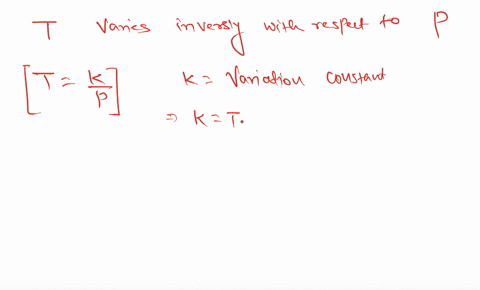 T varies inversly with respect to P
[T = K/P] K = Variation constant
⇒ K = T.